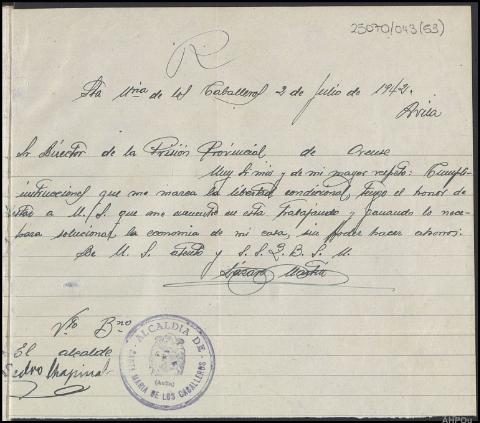 25070/043(53)
R
Sta Mria de los Caballeros 2 de Julio de 1942.
Avila
Sr Director de la Prisión Provincial de Orense
Muy Sr mio y de mi mayor respeto: Cumpli-
instrucciones que me marca la libertad condicional tengo el honor de
a M/S. que me encuentro en esta trabajando y ganando lo nece-
para solucionar la economia de mi casa, sin poder hacer ahorros.
De M. S. atento y S. S. Q. B. S. M.
Martin
Vto Bno
El alcalde
Pedro
ALCALDIA DE
SANTA MARIA DE LOS CABALLEROS
(Avila)
AHPOu